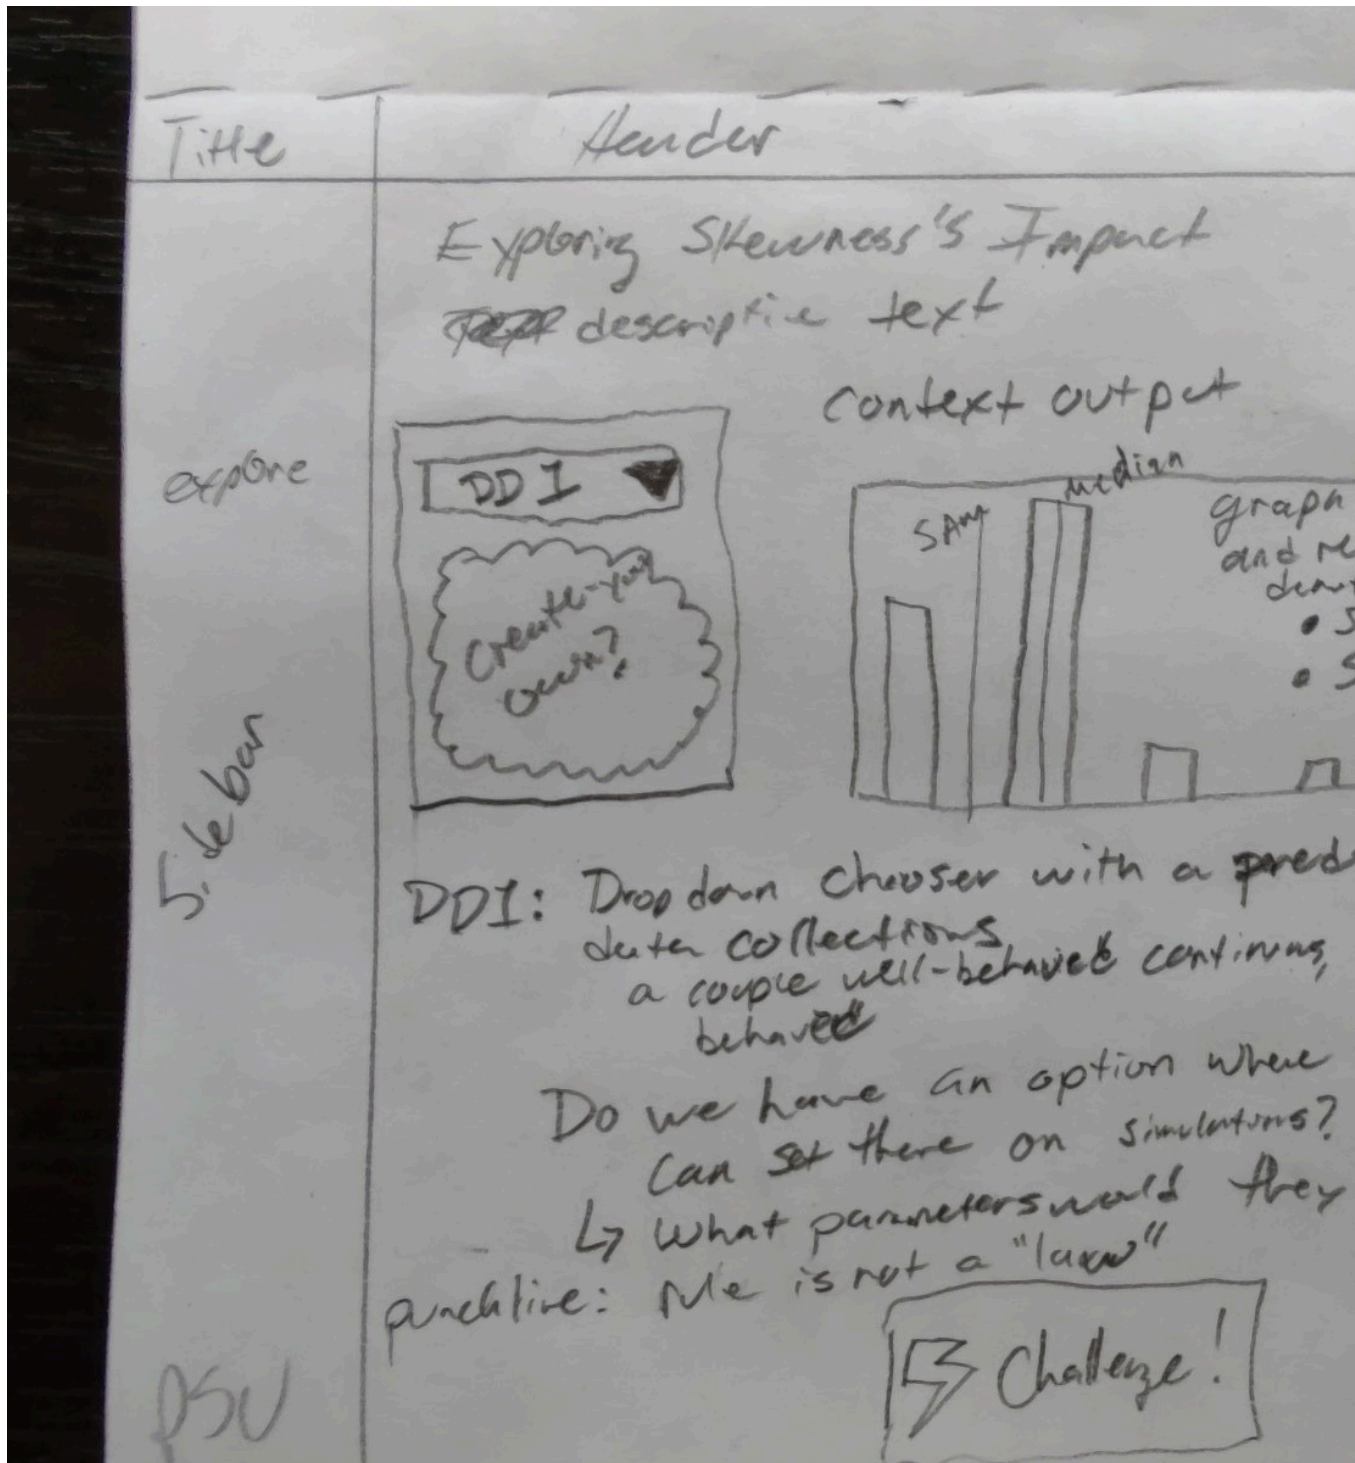 Title
Header
Exploring Skewness's Impact
descriptive text
context output
explore
DDI
Create-your
own?
SAM
median
graph
and re
• S
• S
Sidebar
DDI: Drop down chooser with a pred
data collections
a couple well-behaved continuous,
behaved
Do we have an option where
can set there on simulations?
↳ What parameters would they
punchline: rule is not a "law"
Challenge!
PSU